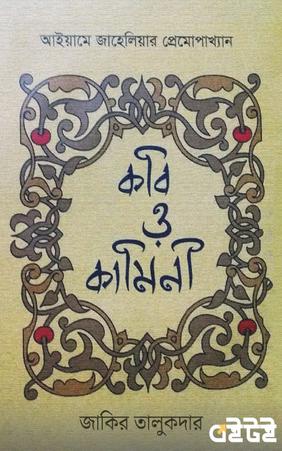 আইয়ামে জাহেলিয়ার প্রেমোপাখ্যান
কবি
ও
কামিনী
জাকির তালুকদার